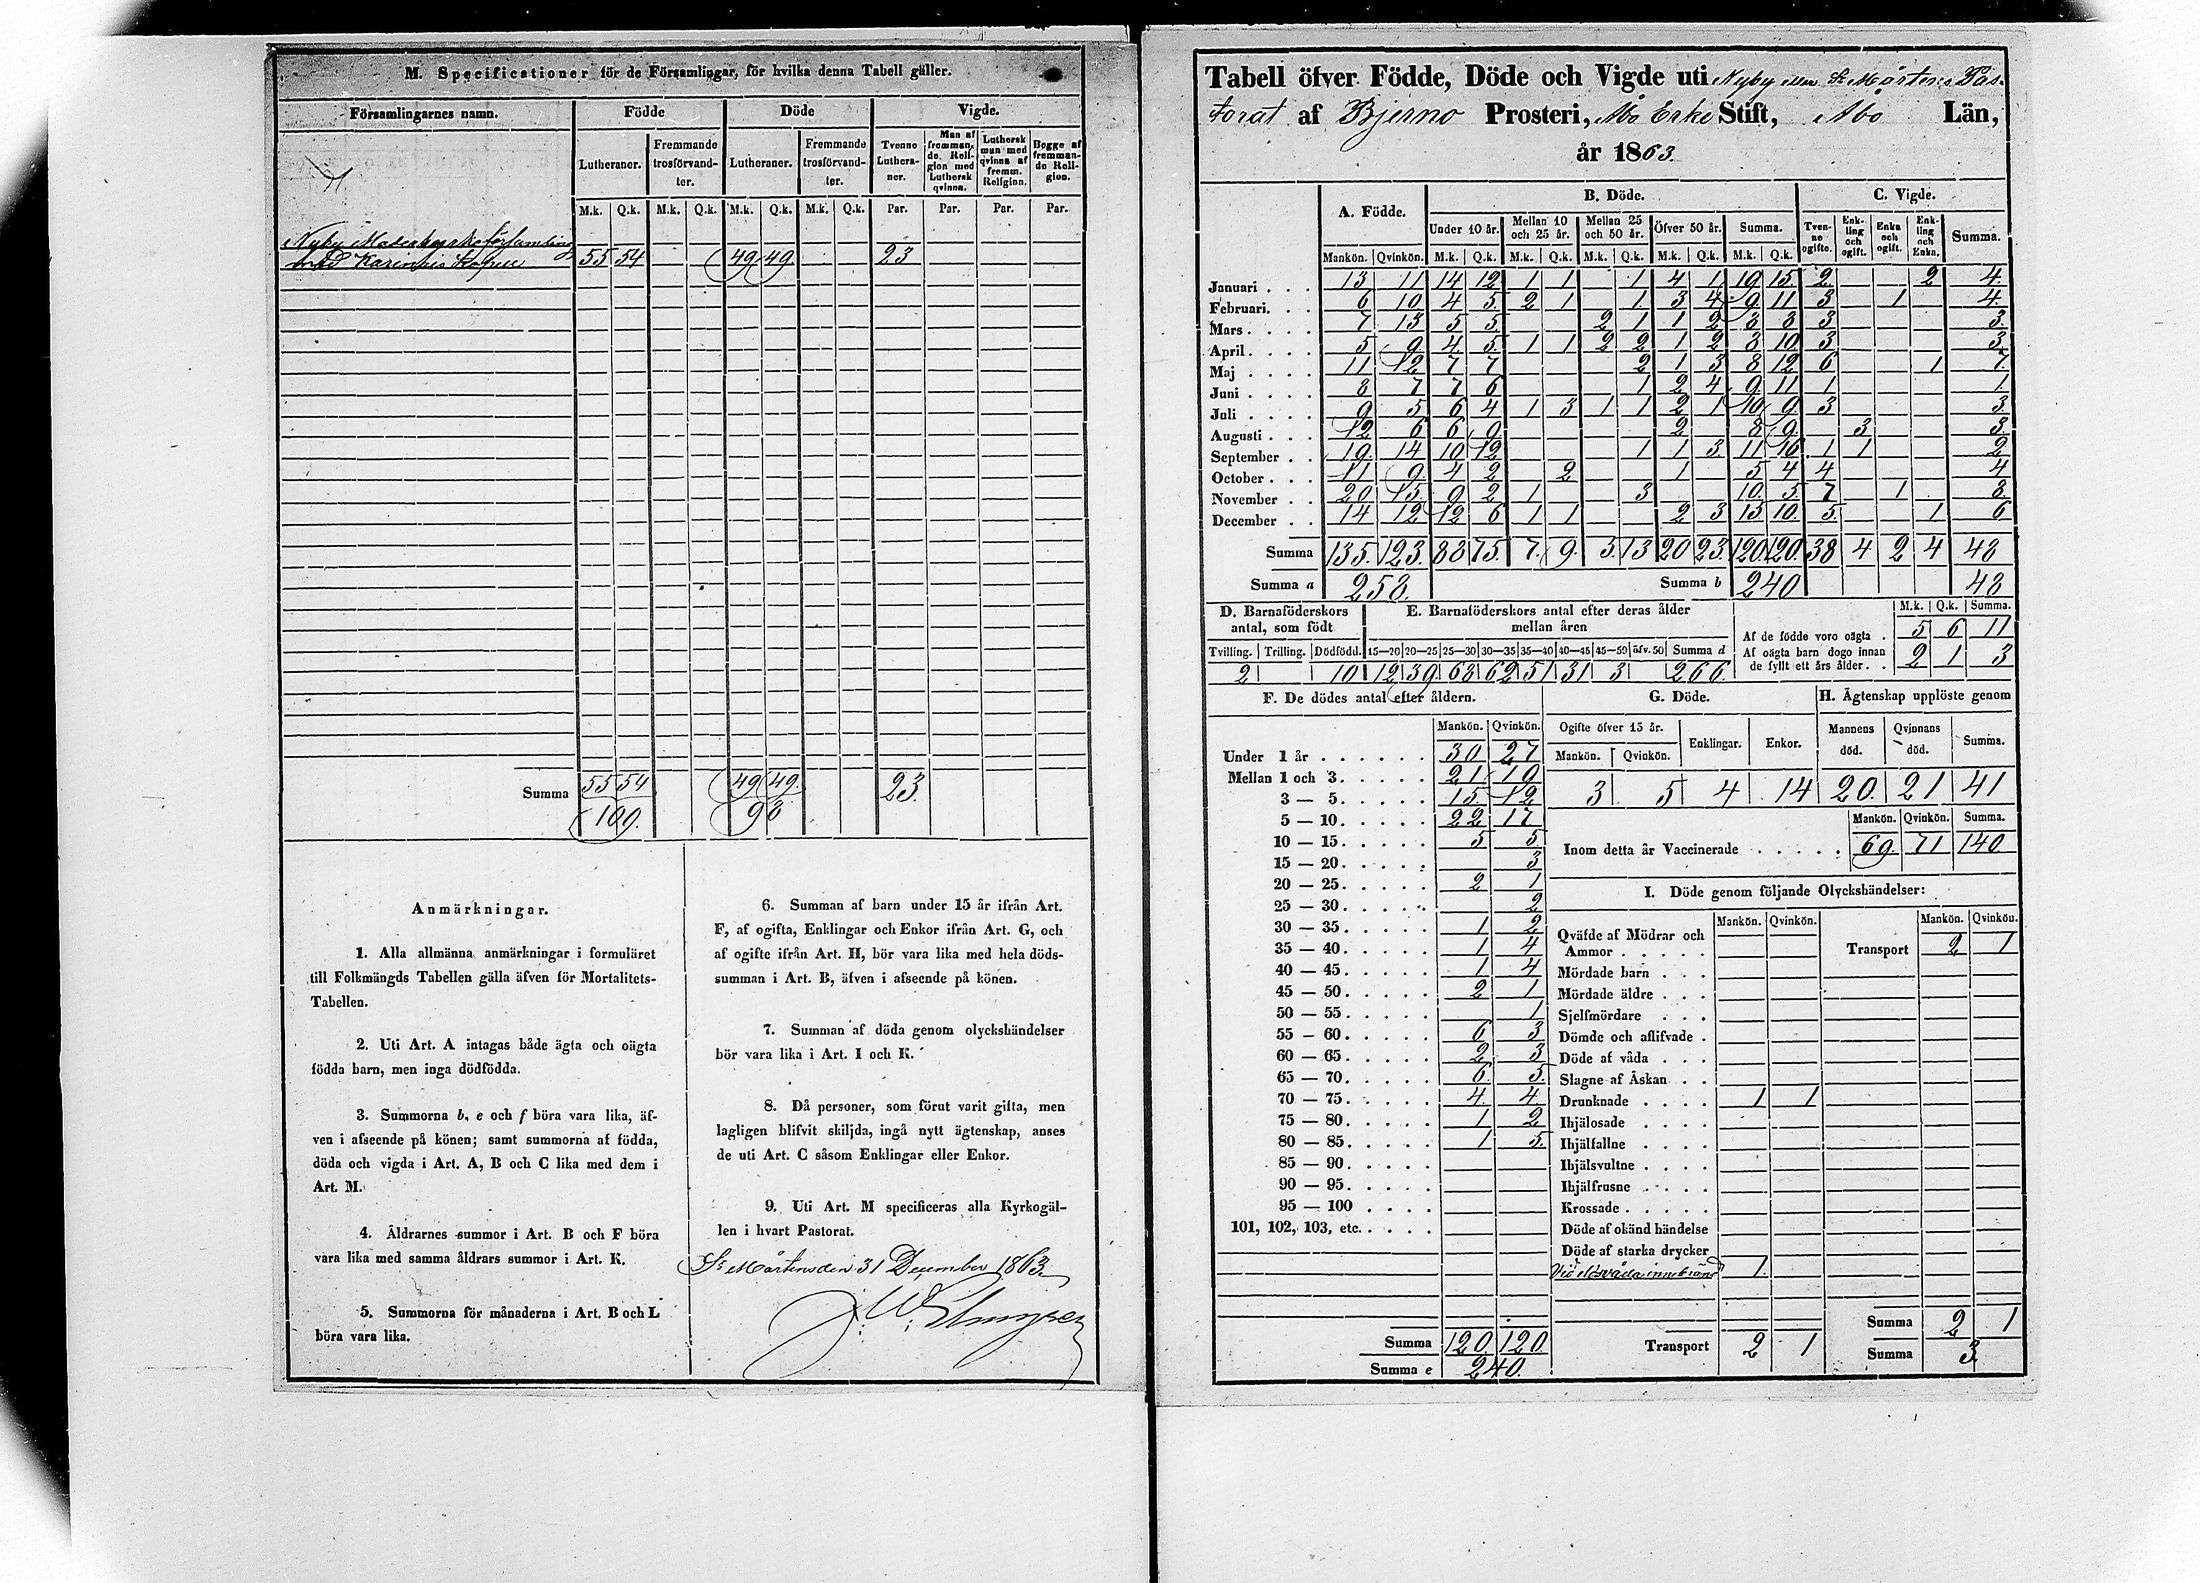 M. Specificationer för de Församlingar, för hvilka denna Tabell gäller.
Församlingarnes namn. Födde Döde Vigde.
Lutheraner. Fremmande trosförvandter. Lutheraner. Fremmande trosförvandter. Tvenne Lutheraner. Man af fremmande Religion med Luthersk qvinna. Luthersk man med qvinna af fremm. Religion. Begge af fremmande Religion.
M.k. Q.k. M.k. Q.k. M.k. Q.k. M.k. Q.k. Par. Par. Par. Par.
Nyby Moderkyrkoförsamling
med Karinais Kapell 55 54 49 49 23
Summa 55 54 49 49 23
109. 98
Anmärkningar.
1. Alla allmänna anmärkningar i formuläret
till Folkmängds Tabellen gälla äfven för Mortalitets-
Tabellen.
2. Uti Art. A intagas både ägta och oägta
födda barn, men inga dödfödda.
3. Summorna b, e och f böra vara lika, äf-
ven i afseende på könen; samt summorna af födda,
döda och vigda i Art. A, B och C lika med dem i
Art. M.
4. Åldrarnes summor i Art. B och F böra
vara lika med samma åldrars summor i Art. K.
5. Summorna för månaderna i Art. B och L
böra vara lika.
6. Summan af barn under 15 år ifrån Art.
F, af ogifta, Enklingar och Enkor ifrån Art. G, och
af ogifte ifrån Art. H, bör vara lika med hela döds-
summan i Art. B, äfven i afseende på könen.
7. Summan af döda genom olyckshändelser
bör vara lika i Art. I och K.
8. Då personer, som förut varit gifta, men
lagligen blifvit skiljda, ingå nytt ägtenskap, anses
de uti Art. C såsom Enklingar eller Enkor.
9. Uti Art. M specificeras alla Kyrkogäl-
len i hvart Pastorat.
St Mårtens den 31 December 1863.
Tabell öfver Födde, Döde och Vigde uti Nyby eller St Mårtens Pas-
torat af Bjerno Prosteri, Åbo Erke Stift, Åbo Län,
år 1863.
A. Födde. B. Döde. C. Vigde.
Under 10 år. Mellan 10 och 25 år. Mellan 25 och 50 år. Öfver 50 år. Summa. Tvenne ogifte. Enkling och ogift. Enka och ogift. Enkling och Enka. Summa.
Mankön. Qvinkön. M.k. Q.k. M.k. Q.k. M.k. Q.k. M.k. Q.k. M.k. Q.k.
Januari 13 11 14 12 1 1 1 4 1 19 15 2 2 4
Februari. 6 10 4 5 2 1 1 3 4 9 11 3 1 4
Mars 7 13 5 5 2 1 1 2 8 8 3 3
April 5 9 4 5 1 1 2 2 1 2 8 10 3 3
Maj 11 12 7 7 2 1 3 8 12 6 1 7
Juni 8 7 7 6 1 2 4 9 11 1 1
Juli 9 5 6 4 1 3 1 1 2 1 10 9 3 3
Augusti 12 6 6 9 2 8 9 3 3
September 19 14 10 12 1 1 3 11 16 1 1 2
October 11 9 4 2 2 1 5 4 4 4
November 20 15 9 2 1 3 10 5 7 1 8
December 14 12 12 6 1 1 2 3 15 10 5 1 6
Summa 135 123 88 75 7 9 5 13 20 23 120 120 38 4 2 4 48
Summa a 258. Summa b 240 48
D. Barnaföderskors antal, som födt
E. Barnaföderskors antal efter deras ålder mellan åren
M.k. Q.k. Summa.
Af de födde voro oägta 5 6 11
Af oägta barn dogo innan
de fyllt ett års ålder 2 1 3
Tvilling. Trilling. Dödfödd. 15—20 20—25 25—30 30—35 35—40 40—45 45—50 öfv. 50 Summa d
2 10 12 39 68 62 51 31 3 266
F. De dödes antal efter åldern.
Mankön. Qvinkön.
Under 1 år 30 27
Mellan 1 och 3 21 19
3 — 5 15 12
5 — 10 22 17
10 — 15 5 5
15 — 20 3
20 — 25 2 1
25 — 30 2
30 — 35 1 2
35 — 40 1 4
40 — 45 1 4
45 — 50 2 1
50 — 55 1
55 — 60 6 3
60 — 65 2 3
65 — 70 6 5
70 — 75 4 4
75 — 80 1 2
80 — 85 1 5
85 — 90
90 — 95
95 — 100
101, 102, 103, etc.
Summa 120 120
Summa e 240.
G. Döde.
Ogifte öfver 15 år. Enklingar. Enkor.
Mankön. Qvinkön.
3 5 4 14
H. Ägtenskap upplöste genom
Mannens död. Qvinnans död. Summa.
20 21 41
Mankön. Qvinkön. Summa.
Inom detta år Vaccinerade 69 71 140
I. Döde genom följande Olyckshändelser:
Mankön. Qvinkön. Mankön. Qvinkön.
Qväfde af Mödrar och
Ammor Transport 2 1
Mördade barn
Mördade äldre
Sjelfmördare
Dömde och aflifvade
Döde af våda
Slagne af Åskan
Drunknade 1 1
Ihjälosade
Ihjälfallne
Ihjälsvultne
Ihjälfrusne
Krossade
Döde af okänd händelse
Döde af starka drycker
Vid elsvåda innebränd 1
Summa 2 1
Transport 2 1 Summa 3